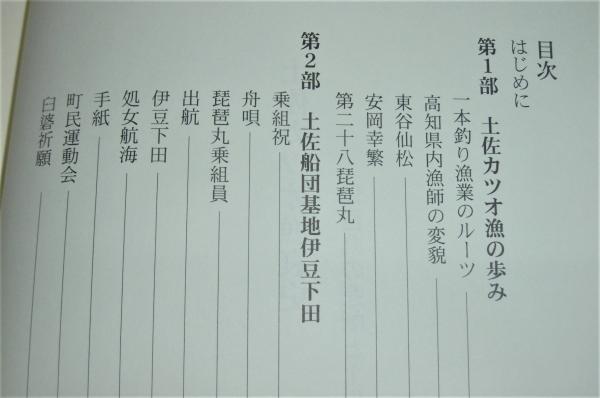 目次
はじめに
第1部 土佐カツオ漁の歩み
一本釣り漁業のルーツ
高知県内漁師の変貌
東谷仙松
安岡幸繁
第二十八琵琶丸
第2部 土佐船団基地伊豆下田
乗組祝
舟唄
琵琶丸乗組員
出航
伊豆下田
処女航海
手紙
町民運動会
臼碆祈願